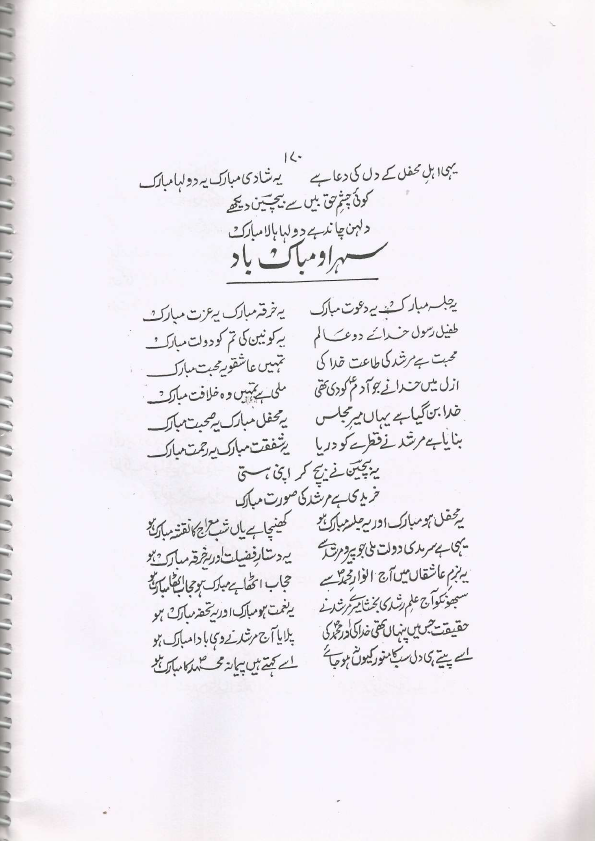 ۱۷۰
یہی اہلِ محفل کے دل کی دعا ہے یہ شادی مبارک یہ دولہا مبارک
کوئی چشمِ حق بیں سے بیچین دیکھے
دلہن چاند ہے دولہا ہالا مبارک
سہرا و مبارک باد
یہ جلسہ مبارک یہ دعوت مبارک یہ خرقہ مبارک یہ عزت مبارک
طفیل رسول خدائے دو عالم یہ کونین کی تم کو دولت مبارک
محبت ہے مرشد کی طاعت خدا کی تمہیں عاشقو یہ محبت مبارک
ازل میں خدا نے جو آدمؑ کو دی تھی ملی ہے تمہیں وہ خلافت مبارک
خدا بن گیا ہے یہاں میرِ مجلس یہ محفل مبارک یہ صحبت مبارک
بنایا ہے مرشد نے قطرے کو دریا یہ شفقت مبارک یہ رحمت مبارک
یہ بیچین نے بیچ کر اپنی ہستی
خریدی ہے مرشد کی صورت مبارک
یہ محفل ہو مبارک اور یہ جلسہ مبارک ہو کھنچا ہے یاں شب معراج کا نقشہ مبارک ہو
یہی ہے سرمدی دولت ملی جو پیر و مرشد سے یہ دستارِ فضیلت اور یہ خرقہ مبارک ہو
یہ بزمِ عاشقاں میں آج انوارِ محمدؐ سے حجاب اٹھا ہے مبارک ہو حجاب اٹھا مبارک ہو
سبھوں کو آج علمِ رشدی بخشا میرے مرشد نے یہ نعمت ہو مبارک اور یہ تحفہ مبارک ہو
حقیقت جس میں پنہاں تھی خدا کی اور محمدؐ کی پلایا آج مرشد نے وہی بادا مبارک ہو
اے پیتے ہی دل سب کا منور کیوں نہ ہو جائے اے کہتے ہیں پیمانہ محمدؐ کا مبارک ہو